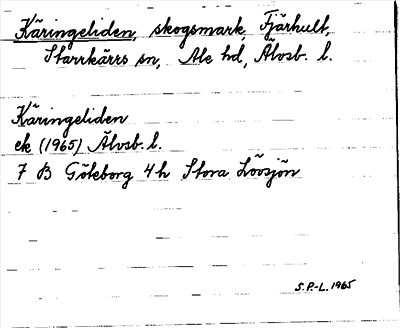 Käringeliden, skogsmark, Fjärhult,
Starrkärrs sn, Ale hd, Älvsb. l.
Käringeliden
ek (1965) Älvsb. l.
7 B Göteborg 4 h Stora Lövsjön
S.P.-L. 1965